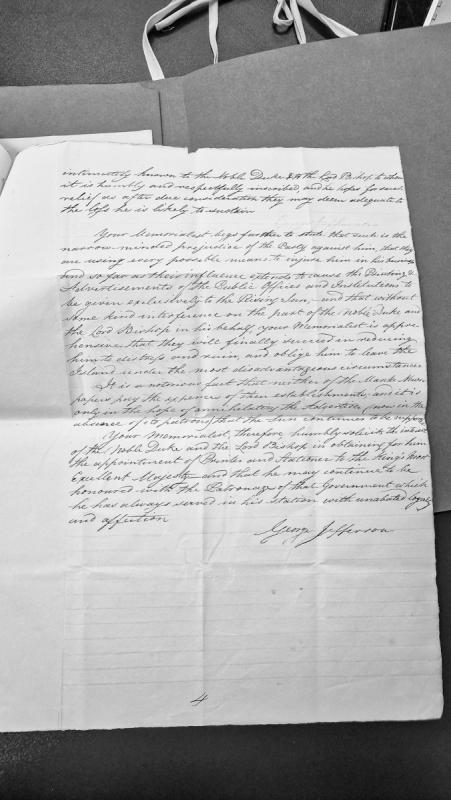 intimately known to the Noble Duke & the Lord Bishop to whom
it is humbly and respectfully inscribed, and he hopes for such
relief as after due consideration they may deem adequate to
the loss he is likely to sustain
Your Memorialist begs further to state that such is the
narrow minded prejudice of the Party against him, that they
are using every possible means to injure him in his business
and so far as their influence extends to cause the Printing &
Advertisements of the Public Offices and Institutions to
be given exclusively to the Rising Sun, and that without
some kind interference on the part of the Noble Duke and
the Lord Bishop in his behalf, your Memorialist is appre-
hensive that they will finally succeed in reducing
him to distress and ruin, and oblige him to leave the
Island under the most disadvantageous circumstances
It is a notorious fact that neither of the Manks News-
papers pay the expences of their establishments, and it is
only in the hope of annihilating the Advertiser (now in the
absence of its patrons) that the Sun continues to be
Your Memorialist, therefore humbly solicits the
of the Noble Duke and the Lord Bishop in obtaining for him
the appointment of Printer and Stationer to the King's Most
Excellent Majesty and that he may continue to be
honoured with the Patronage of that Government which
he has always served in his station with unabated loyalty
and affection
George Jefferson
4